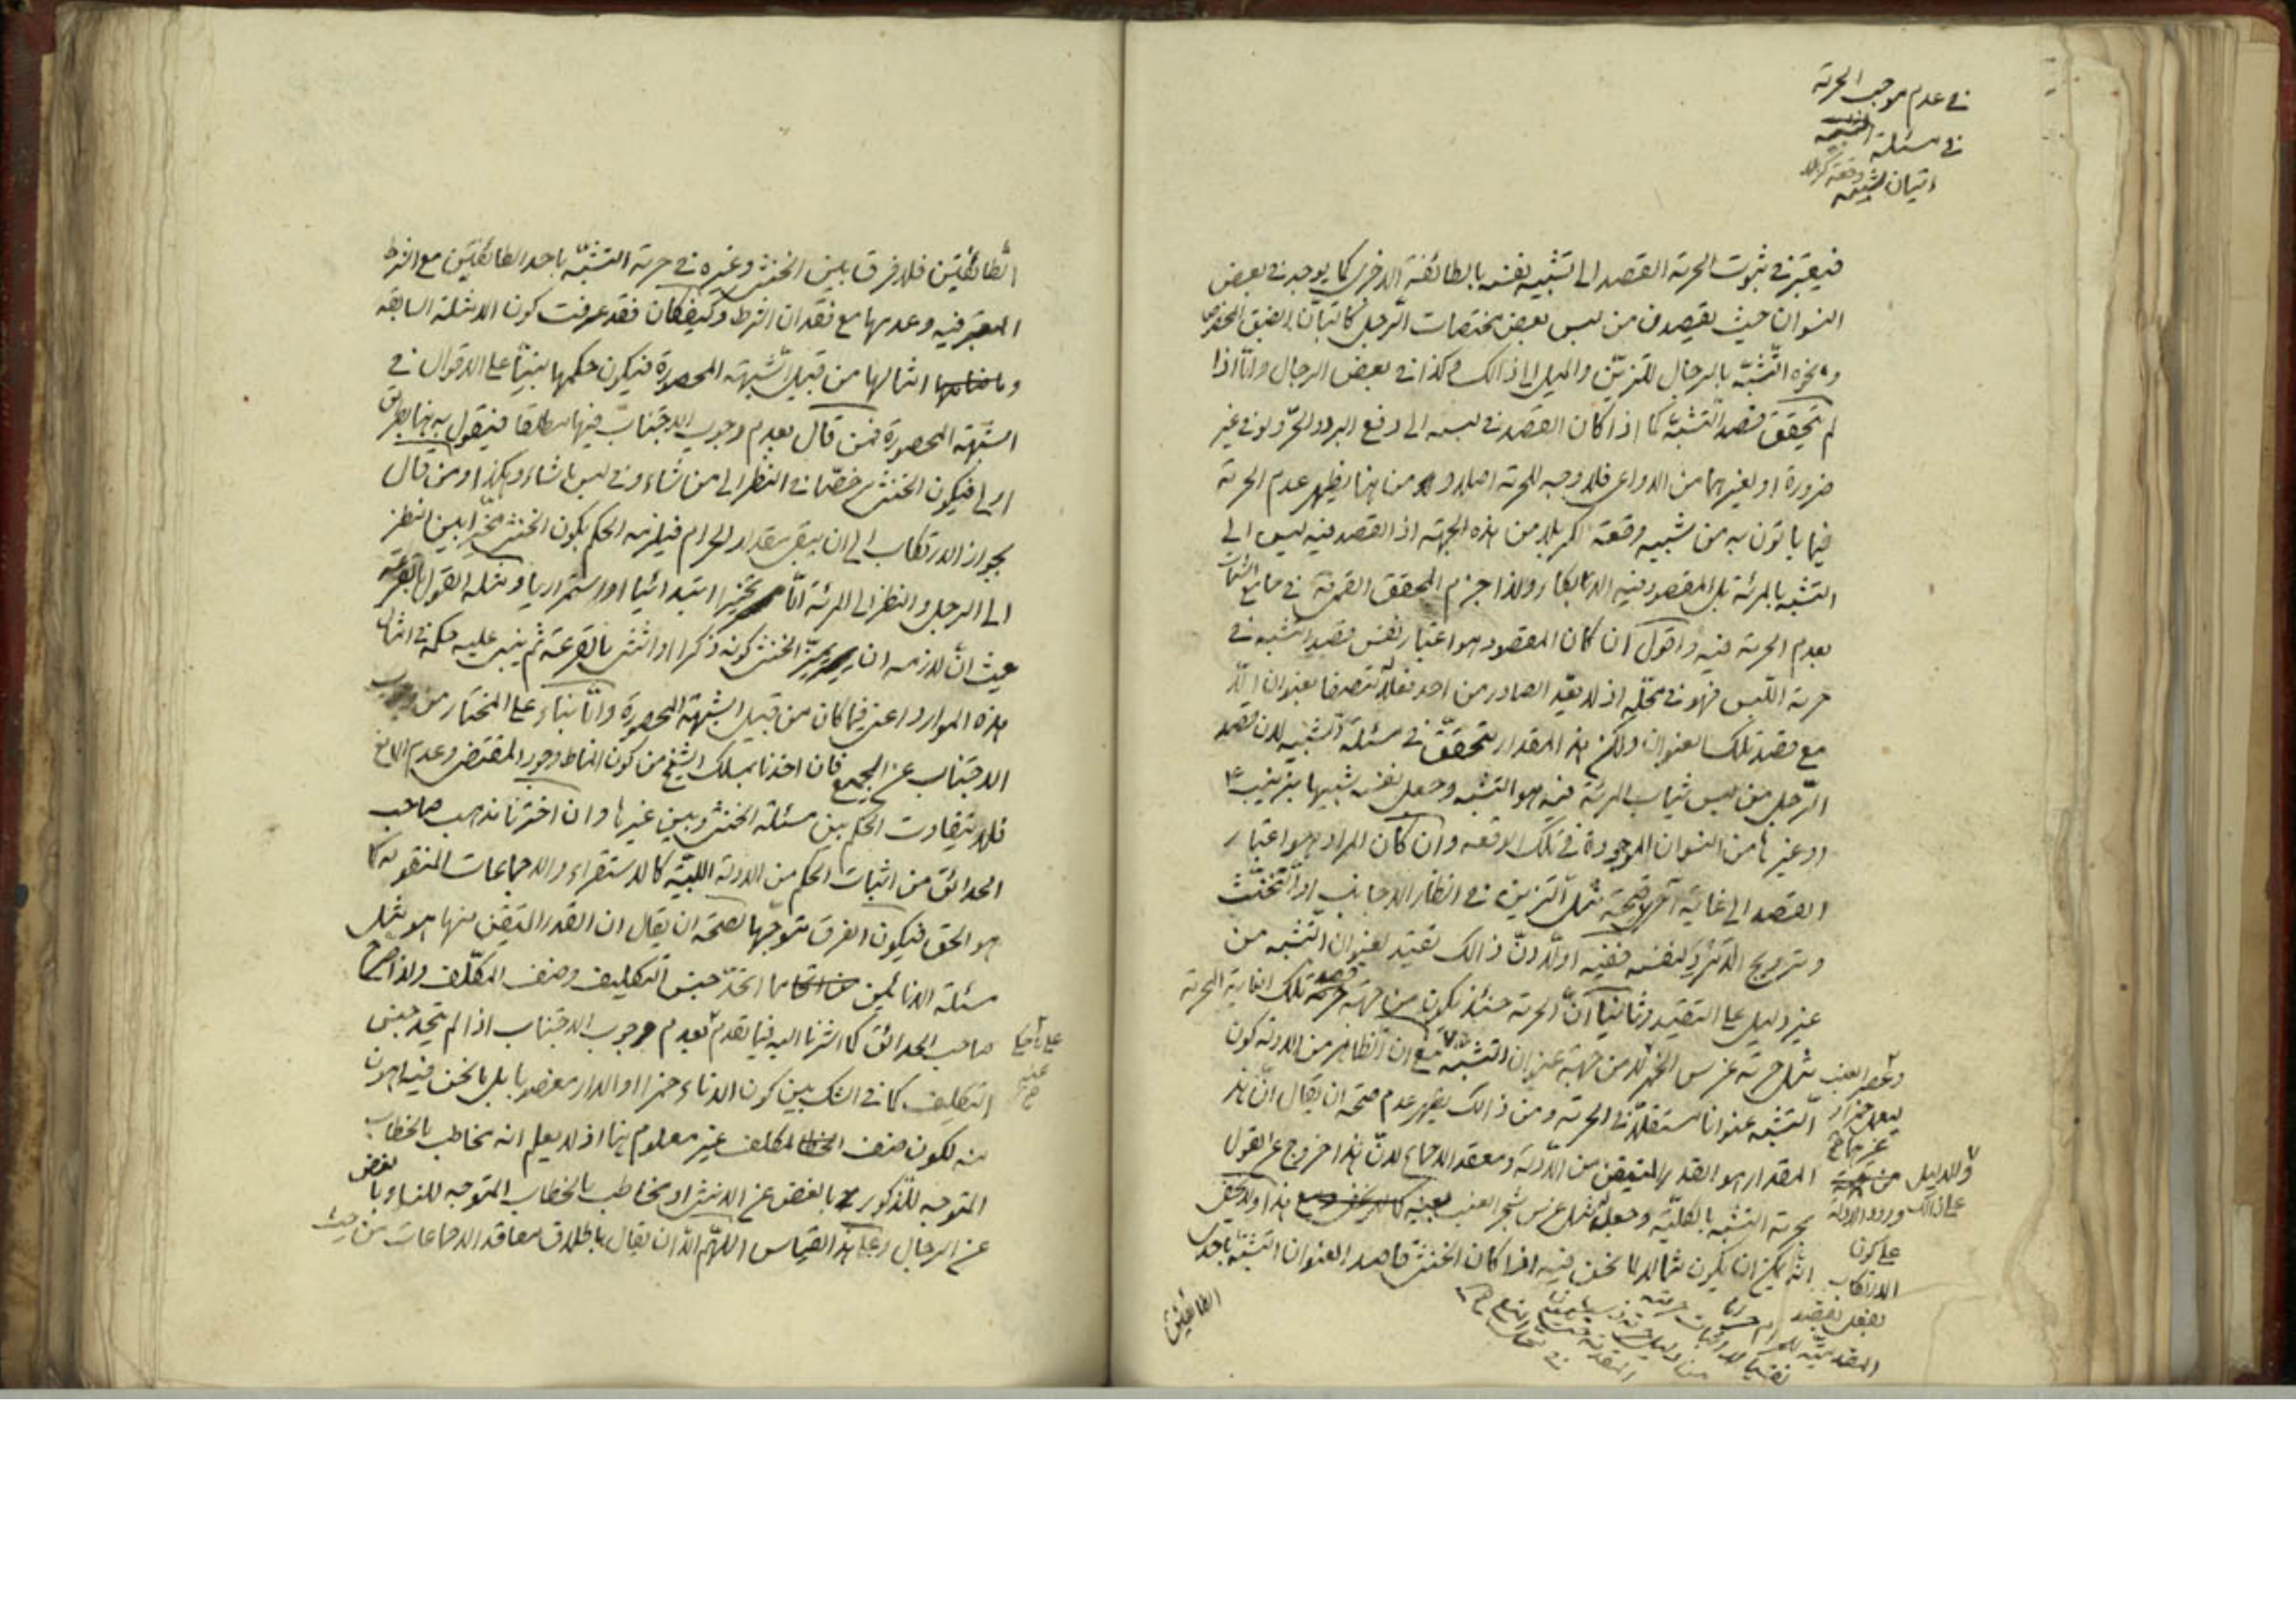 في عدم موجب الحرمة
في مسئلة التشبيه
اتيان شبيه وقعة كربلا
فيعتبر في ثبوت الحرمة القصد الى تشبيه نفسه بالطائفة الاخرى كما يوجد في بعض
النسوان حيث يقصدن من لبس بعض مختصات الرجل كالتبان الضيق المخصوص
ونحوه التشبه بالرجال للتزين والميل الى ذالك وكذا في بعض الرجال وامّا اذا
لم يتحقق قصد التشبّه كما اذا كان القصد في لبسه الى دفع البرد والحرّ ولو في غير
ضرورة او لغيرهما من الدواعى فلا وجه للحرمة اصلا ومن هنا يظهر عدم الحرمة
فيما ياتون به من شبيه وقعة الكربلا من هذه الجهة اذ القصد فيه ليس الى
التشبه بالمرئة بل المقصود فيه الابكاء ولذا جزم المحقق القمى في جامع الشتات
بعدم الحرمة فيه واقول ان كان المقصود هو اعتبار نفس قصد التشبه في
حرمة اللبس فهو في محلّه اذ لا يعدّ الصادر من احد فعلا متصفا بعنوان الّا
مع قصد تلك العنوان ولكن هذا المقدار متحقّق في مسئلة التشبيه لان قصد
الرّجل من لبس ثياب المرئة فيه هو التشبه وجعل نفسه شبيها بزينب ع
او غيرها من النسوان الموجودة في تلك الوقعه وان كان المراد هو اعتبار
القصد الى غاية اخرى مثل التزين في انظار الاجانب او التخنّث
وترويج لنفسه ففيه اولا انّ ذالك تقييد لعنوان التشبه من
غير دليل على التقييد وثانيا انّ الحرمة حينئذ يكون من جهة قصد تلك الغاية المحرمة
مثل حرمة غرس الخمر لا من جهة عنوان التشبه مع ان الظاهر من الادلة كون
التشبه عنوانا مستقلا في الحرمة ومن ذالك يظهر عدم صحة ان يقال انّ هذا
المقدار هو القدر المتيقن من الادلة ومعقد الاجماع لانّ هذا خروج عن القول
بحرمة التشبه بالكلية وجعله مثل غرس شجر العنب هذا ولا يخفى
انّه يمكن ان يكون مثالا لما نحن فيه اذا كان الخنثى قاصدا لعنوان التشبّه باحدى
وعصر العنب
ليعمل خمرا او
غيرهما
والدليل
على ذالك ورود الادلة
على كون
الارتكاب
بفعل بقصد
المقدمية للحرام حراما
الطائفتين
الطّائفتين فلا فرق بين الخنثى وغيره في حرمة التشبّه باحد الطائفتين مع الشرط
المعتبر فيه وعدمها مع فقدان الشرط وكيف كان فقد عرفت كون الامثلة السابقة
وامثالها من قبيل الشّبهة المحصورة فيكون حكمها مبنيّا على الاقوال في
الشّبهة المحصورة فمن قال بعدم وجوب الاجتناب فيها مطلقا فيقول به هنا بطريق
اولى فيكون الخنثى مرخّصا في النظر الى من شاء وفي لبس ما شاء وهكذا ومن قال
بجواز الارتكاب الى ان يبقى مقدار الحرام فيلزمه الحكم بكون الخنثى مخيّرا بين النظر
الى الرجل والنظر الى المرئة امّا تخييرا ابتدائيا او استمراريا ومثله القول بالقرعة
حيث انّ لازمه ان يميّز الخنثى كونه ذكرا او انثى بالقرعة ثم يبنى عليه حكمه في امثال
هذه الموارد اعنى فيما كان من قبيل الشبهة المحصورة وامّا بناء على المختار من وجوب
الاجتناب عن الجميع فان اخذنا بمسلك الشيخ من كون المناط وجود المقتضى وعدم المانع
فلا يتفاوت الحكم بين مسئلة الخنثى وبين غيرها وان اخترنا مذهب صاحب
الحدائق من اثبات الحكم من الادلة اللبيّة كالاستقراء والاجماعات المنقوله كما
هو الحق فيكون الفرق متوجّها لصحة ان يقال ان القدر المتيقن منها هو مثل
مسئلة الانائين مما اتحد جنس التكليف وصنف المكلّف ولذا صرّح
صاحب الحدائق كما اشرنا اليه فيما تقدم بعدم وجوب الاجتناب اذا لم يتحد جنس
التكليف كما في الشك بين كون الاناء خمرا او الدار مغصوبا بل ما نحن فيه اهون
منه لكون صنف المكلف غير معلوم هنا اذ لا يعلم انه مخاطب بالخطاب
المتوجه للذكور بالغض عن الانثى او مخاطب بالخطاب المتوجه للنساء بالغض
عن الرجال وعلى هذا القياس اللهم الّا ان يقال باطلاق معاقد الاجماعات من حيث